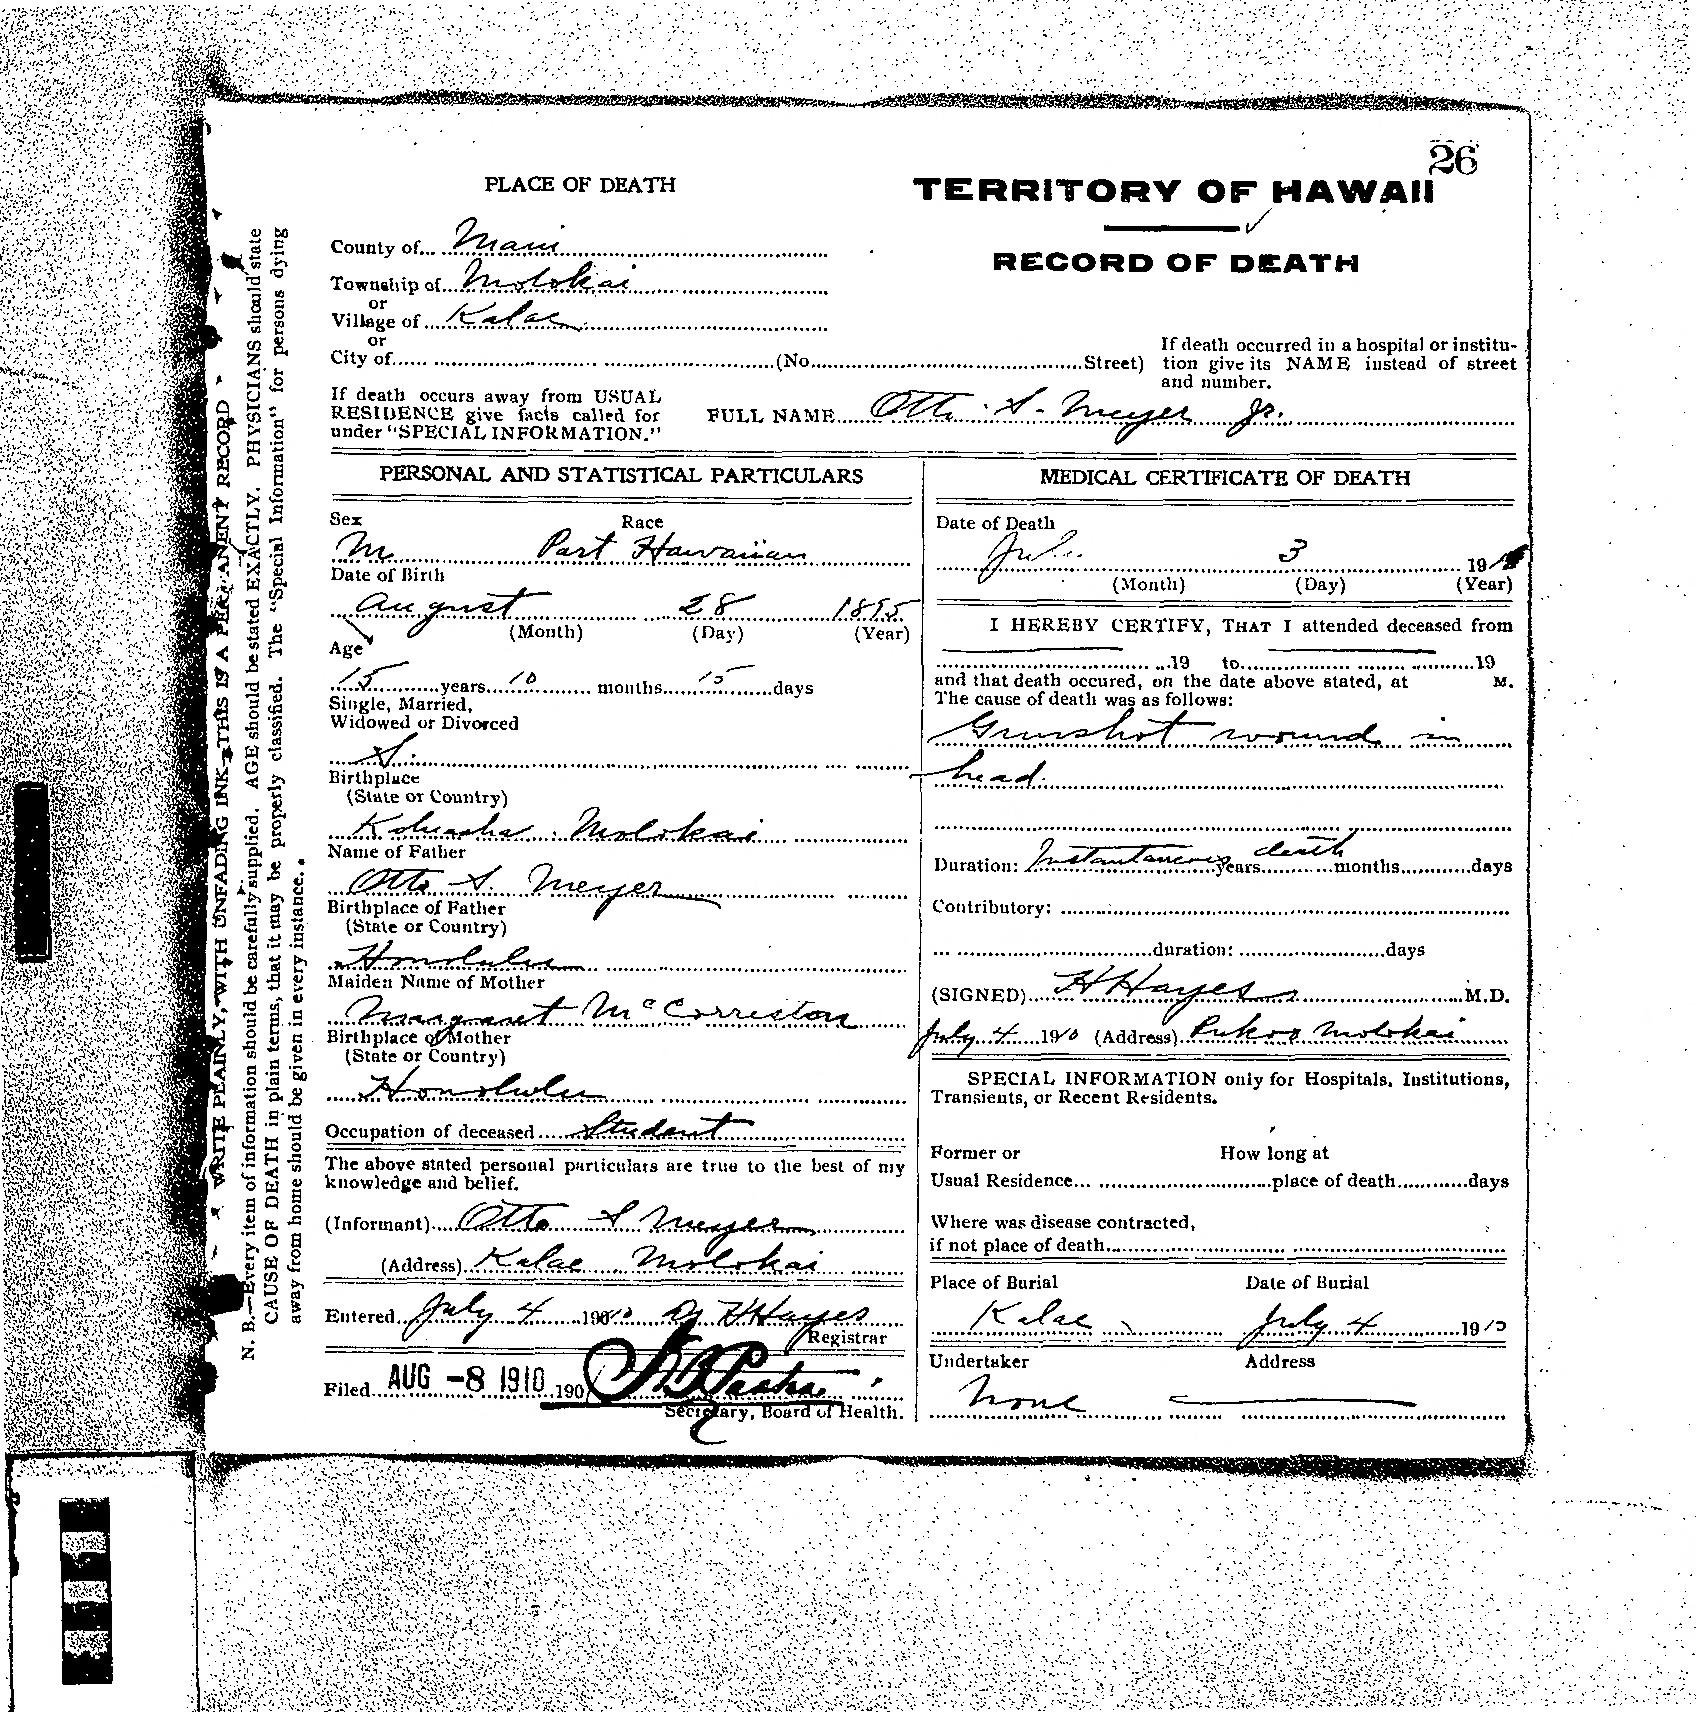 26
PLACE OF DEATH
TERRITORY OF HAWAII
RECORD OF DEATH
County of Maui
Township of Molokai
or
Village of Kalae
or
City of (No. Street)
If death occurred in a hospital or institu-
tion give its NAME instead of street
and number.
If death occurs away from USUAL
RESIDENCE give facts called for
under "SPECIAL INFORMATION."
FULL NAME Otto S. Meyer Jr.
PERSONAL AND STATISTICAL PARTICULARS
Sex Race
M Part Hawaiian
Date of Birth
August 28 1895
(Month) (Day) (Year)
Age
15 years 10 months 15 days
Single, Married,
Widowed or Divorced
S.
Birthplace
(State or Country)
Molokai
Name of Father
Otto S. Meyer
Birthplace of Father
(State or Country)
Honolulu
Maiden Name of Mother
Margaret McCorriston
Birthplace of Mother
(State or Country)
Honolulu
Occupation of deceased Student
The above stated personal particulars are true to the best of my
knowledge and belief.
(Informant) Otto S Meyer
(Address) Kalae Molokai
Entered July 4 1910 HHayes
Registrar
Filed AUG -8 1910 190
Secretary, Board of Health.
MEDICAL CERTIFICATE OF DEATH
Date of Death
July 3 19
(Month) (Day) (Year)
I HEREBY CERTIFY, THAT I attended deceased from
19 to 19
and that death occured, on the date above stated, at M.
The cause of death was as follows:
Gunshot wound in
head.
Duration: Instantaneous death years months days
Contributory:
duration: days
(SIGNED) HHayes M.D.
July 4 1910 (Address) Pukoo Molokai
SPECIAL INFORMATION only for Hospitals, Institutions,
Transients, or Recent Residents.
Former or How long at
Usual Residence place of death days
Where was disease contracted,
if not place of death
Place of Burial Date of Burial
Kalae July 4 1910
Undertaker Address
None
WRITE PLAINLY, WITH UNFADING INK—THIS IS A PERMANENT RECORD
N. B.—Every item of information should be carefully supplied. AGE should be stated EXACTLY. PHYSICIANS should state
CAUSE OF DEATH in plain terms, that it may be properly classified. The "Special Information" for persons dying
away from home should be given in every instance.